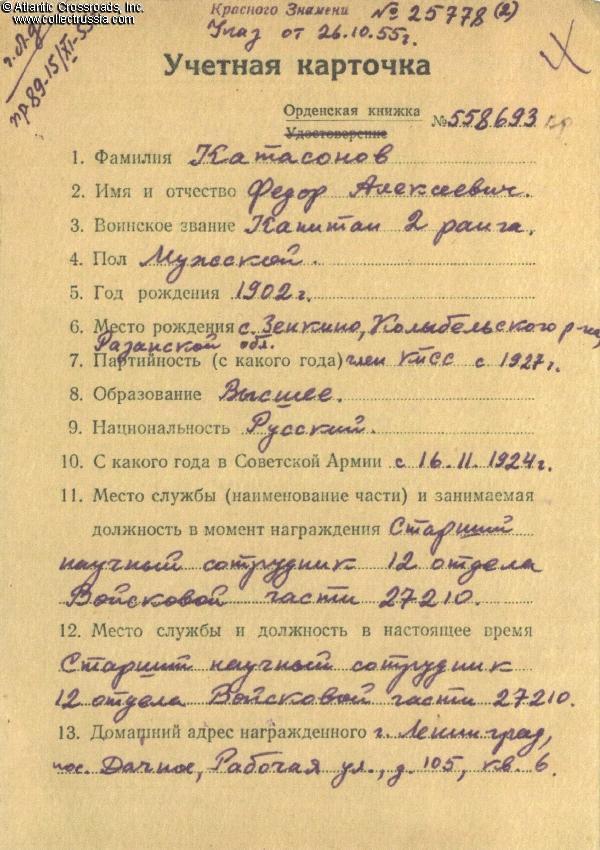 © Atlantic Crossroads, Inc.
collectrussia.com
Красного Знамени № 25778 (2)
Указ от 26.10.55г.
пр 89-15/XI-55
Учетная карточка
Орденская книжка
Удостоверение
№ 558693
1. Фамилия Катасонов
2. Имя и отчество Федор Алексеевич.
3. Воинское звание Капитан 2 ранга.
4. Пол Мужской.
5. Год рождения 1902г.
6. Место рождения с. Зенкино, Колыбельского р-на,
Рязанской обл.
7. Партийность (с какого года) член КПСС с 1927г.
8. Образование Высшее.
9. Национальность Русский.
10. С какого года в Советской Армии с 16.11.1924г.
11. Место службы (наименование части) и занимаемая
должность в момент награждения Старший
научный сотрудник 12 отдела
Войсковой части 27210.
12. Место службы и должность в настоящее время
Старший научный сотрудник
12 отдела Войсковой части 27210.
13. Домашний адрес награжденного г. Ленинград,
пос. Дачное, Рабочая ул., д. 105, кв. 6.